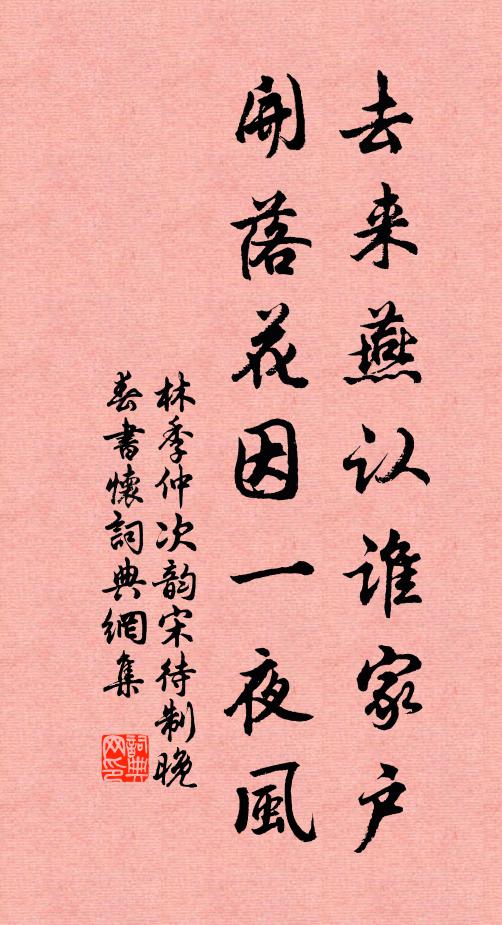 去来燕认谁家户
開落花因一夜風
林季仲次韵宋待制晚
春書懷詞典網集
詞典网印